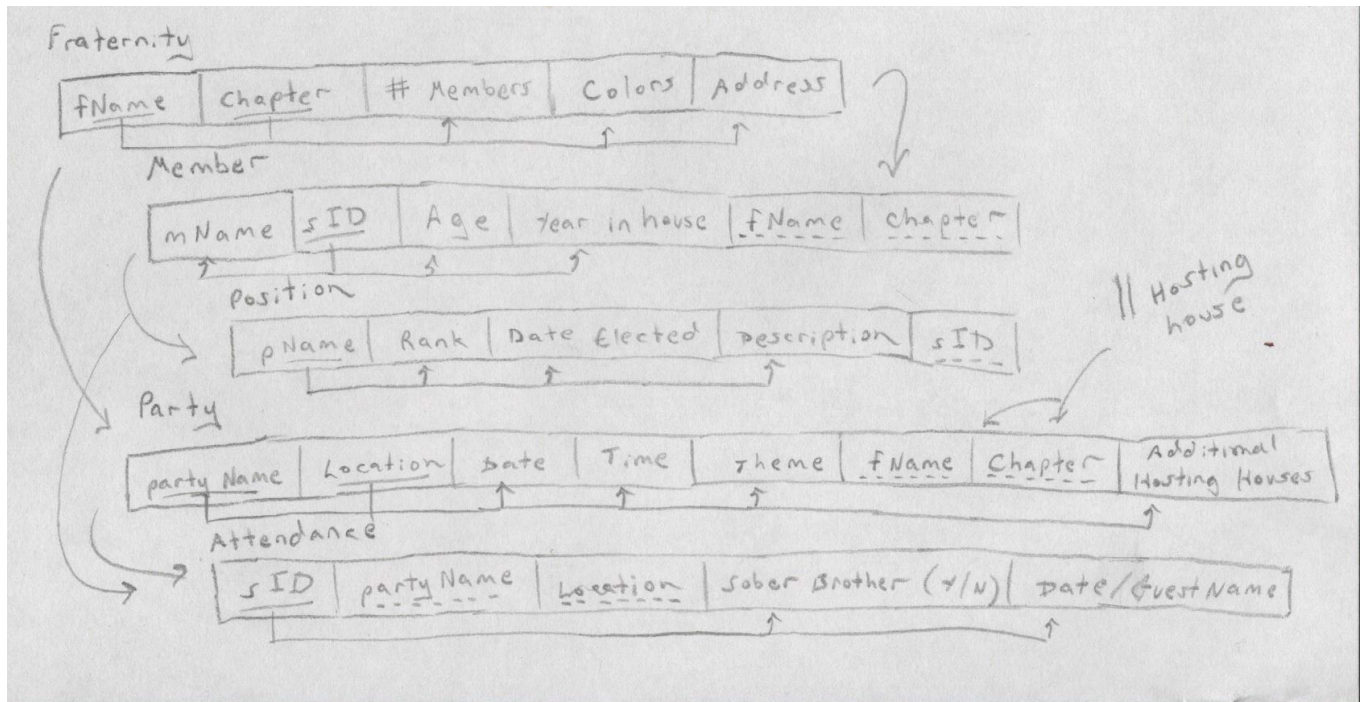 Fraternity
fName Chapter # Members Colors Address
Member
mName sID Age Year in house fName Chapter
Position
pName Rank Date Elected Description sID
|| Hosting
house
Party
party Name Location Date Time Theme fName Chapter Additional
Hosting Houses
Attendance
sID party Name Location Sober Brother (Y/N) Date/Guest Name